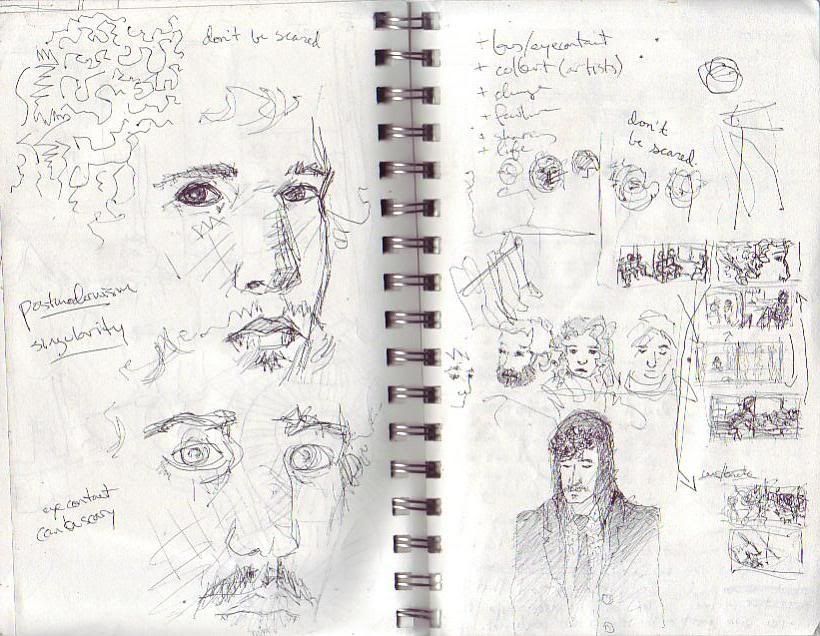 don't be scared
postmodernism
singularity
eye contact
can be scary
+ bus/eyecontact
+ collect (artists)
+ change
+
+
+ life
don't
be scared